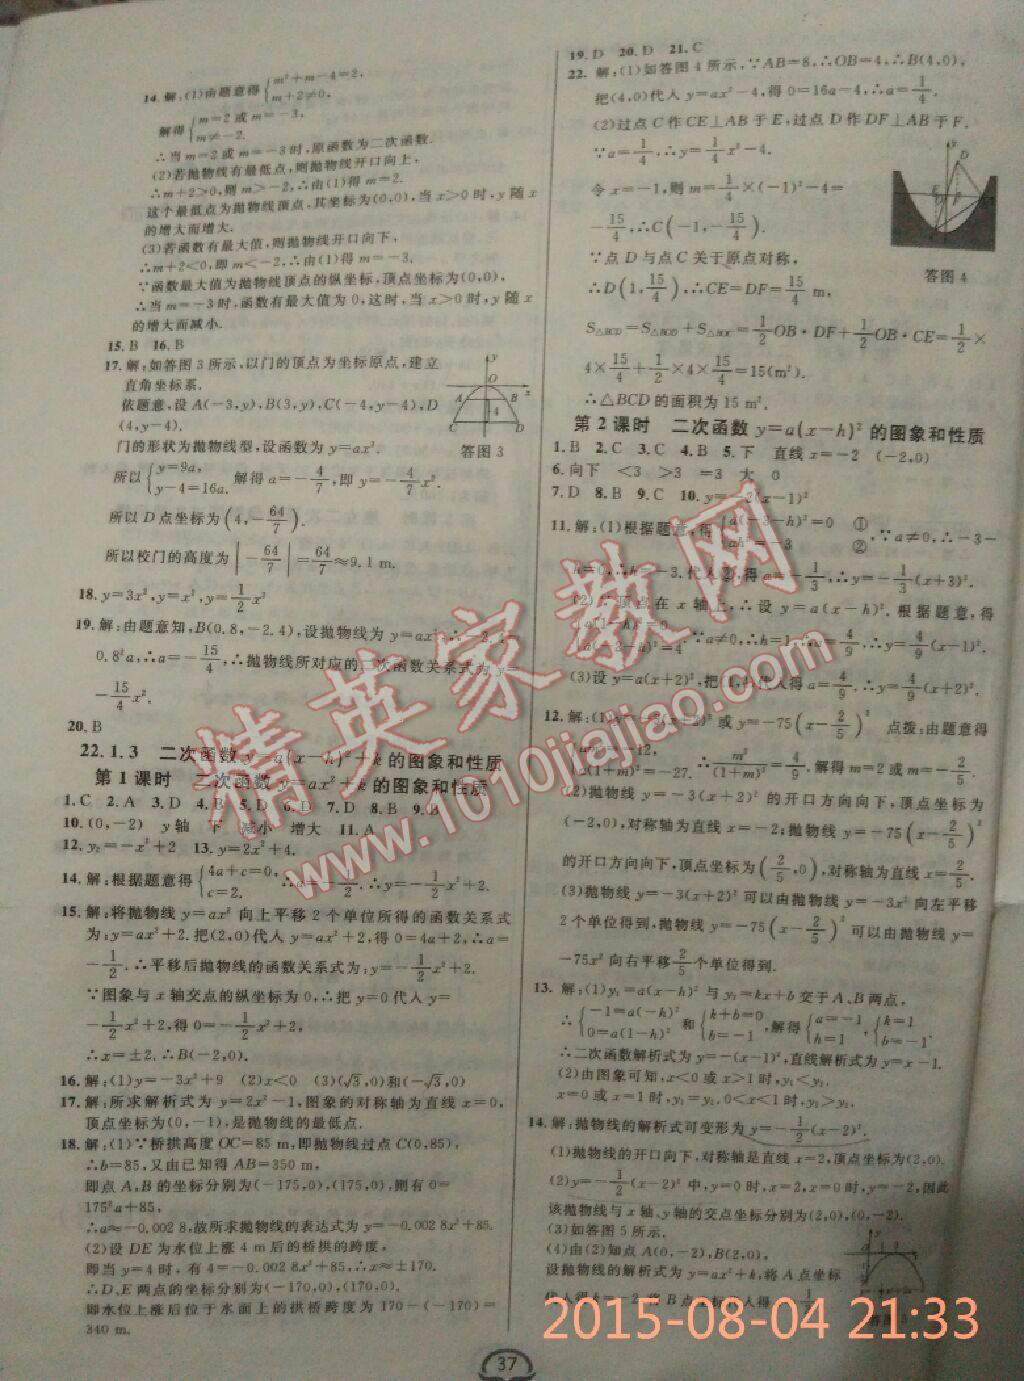 14.解:(1)由题意得{m²+m-4=2, m+2≠0,
解得{m=2或m=-3, m≠-2.
∴当m=2或m=-3时,原函数为二次函数.
(2)若抛物线有最低点,则抛物线开口向上,
∴m+2>0,则m>-2,∴由(1)得m=2.
这个最低点为抛物线顶点,其坐标为(0,0),当x>0时,y随x
的增大而增大.
(3)若函数有最大值,则抛物线开口向下,
∴m+2<0,即m<-2,∴由(1)得m=-3.
∵函数最大值为抛物线顶点的纵坐标,顶点坐标为(0,0),
∴当m=-3时,函数有最大值为0,这时,当x>0时,y随x
的增大而减小.
15.B 16.B
17.解:如答图3所示,以门的顶点为坐标原点,建立
直角坐标系.
依题意,设A(-3,y),B(3,y),C(-4,y-4),D
(4,y-4).
门的形状为抛物线型,设函数为y=ax².
答图3
所以{y=9a, y-4=16a. 解得a=-4/7,即y=-4/7x².
所以D点坐标为(4,-64/7).
所以校门的高度为|-64/7|=64/7≈9.1 m.
18.y=3x²,y=x²,y=1/2x²
19.解:由题意知,B(0.8,-2.4),设抛物线为y=ax²,∴-2.4=
0.8²a,∴a=-15/4,∴抛物线所对应的二次函数关系式为y=
-15/4x².
20.B
22.1.3 二次函数y=a(x-h)²+k的图象和性质
第1课时 二次函数y=ax²+k的图象和性质
1.C 2.A 3.D 4.B 5.D 6.D 7.D 8.B 9.B
10.(0,-2) y轴 下 减小 增大 11.A
12.y₂=-x²+2 13.y=2x²+4.
14.解:根据题意得{4a+c=0, c=2. ∴a=-1/2.∴y=-1/2x²+2.
15.解:将抛物线y=ax²向上平移2个单位所得的函数关系式
为:y=ax²+2.把(2,0)代入y=ax²+2,得0=4a+2,∴a=
-1/2.∴平移后抛物线的函数关系式为:y=-1/2x²+2.
∵图象与x轴交点的纵坐标为0,∴把y=0代入y=
-1/2x²+2,得0=-1/2x²+2,
∴x=±2.∴B(-2,0).
16.解:(1)y=-3x²+9 (2)x<0 (3)(√3,0)和(-√3,0)
17.解:所求解析式为y=2x²-1,图象的对称轴为直线x=0,
顶点坐标为(0,-1),是抛物线的最低点.
18.解:(1)∵桥拱高度OC=85 m,即抛物线过点C(0,85),
∴b=85,又由已知得AB=350 m,
即点A、B的坐标分别为(-175,0),(175,0),则有0=
175²a+85,
∴a≈-0.002 8,故所求抛物线的表达式为y=-0.002 8x²+85.
(2)设DE为水位上涨4 m后的桥拱的跨度,
即当y=4时,有4=-0.002 8x²+85,∴x≈±170.
∴D、E两点的坐标分别为(-170,0),(170,0).
即水位上涨后位于水面上的拱桥跨度为170-(-170)=
340 m.
19.D 20.D 21.C
22.解:(1)如答图4所示,∵AB=8,∴OB=4,∴B(4,0),
把(4,0)代入y=ax²-4,得0=16a-4,∴a=1/4.
(2)过点C作CE⊥AB于E,过点D作DF⊥AB于F.
∵a=1/4,∴y=1/4x²-4.
令x=-1,则m=1/4×(-1)²-4=
-15/4,∴C(-1,-15/4).
∵点D与点C关于原点对称,
答图4
∴D(1,15/4),∴CE=DF=15/4 m,
S△BCD=S△BOD+S△BOC=1/2OB·DF+1/2OB·CE=1/2×
4×15/4+1/2×4×15/4=15(m²).
∴△BCD的面积为15 m².
第2课时 二次函数y=a(x-h)²的图象和性质
1.B 2.C 3.C 4.B 5.下 直线x=-2 (-2,0)
6.向下 <3 >3 =3 大 0
7.D 8.B 9.C 10.y=-2(x-1)²
11.解:(1)根据题意,得{a(-3-h)²=0 ① ah²=-3 ②,∵a≠0,∴-3-
h=0,∴h=-3.代入②,得a=-1/3,∴y=-1/3(x+3)².
(2)∵顶点在x轴上,∴设y=a(x-h)².根据题意,得
{a(1-h)²=0 a(-2-h)²=4 ∵a≠0,∴h=1,∴a=4/9,∴y=4/9(x-1)².
(3)设y=a(x+2)²,把(1,4)代入得a=4/9.∴y=4/9(x+2)².
12.解:(1)y=-3(x+2)²或y=-75(x-2/5)² 点拨:由题意得
{am²=-12, a(1+m)²=-27. ∴m²/(1+m)²=4/9,解得m=2或m=-2/5.
(2)抛物线y=-3(x+2)²的开口方向向下,顶点坐标为
(-2,0),对称轴为直线x=-2;抛物线y=-75(x-2/5)²
的开口方向向下,顶点坐标为(2/5,0),对称轴为直线x=2/5.
(3)抛物线y=-3(x+2)²可以由抛物线y=-3x²向左平移
2个单位得到,抛物线y=-75(x-2/5)²可以由抛物线y=
-75x²向右平移2/5个单位得到.
13.解:(1)y₁=a(x-h)²与y₂=kx+b交于A、B两点,
∴{-1=a(-h)² 0=a(1-h)² 和{k+b=0 b=-1,解得{a=-1 h=1,{k=1 b=-1.
∴二次函数解析式为y=-(x-1)²,直线解析式为y=x-1.
(2)由图象可知,x<0或x>1时,y₁<y₂.
x=0或x=1时,y₁=y₂.0<x<1时,y₁>y₂.
14.解:抛物线的解析式可变形为y=-1/2(x-2)².
(1)抛物线的开口向下,对称轴是直线x=2,顶点坐标为(2,0).
(2)y=-1/2(x-2)²中,y=0时,x=2,x=0时,y=-2,因此
该抛物线与x轴、y轴的交点坐标分别为(2,0),(0,-2).
(3)如答图5所示.
(4)由(2)知点A(0,-2),B(2,0).
设抛物线的解析式为y=ax²+k,将A点坐标
代入得k=-2,将B点坐标代入得
答图5
37
精英家教网
www.1010jiajiao.com
2015-08-04 21:33